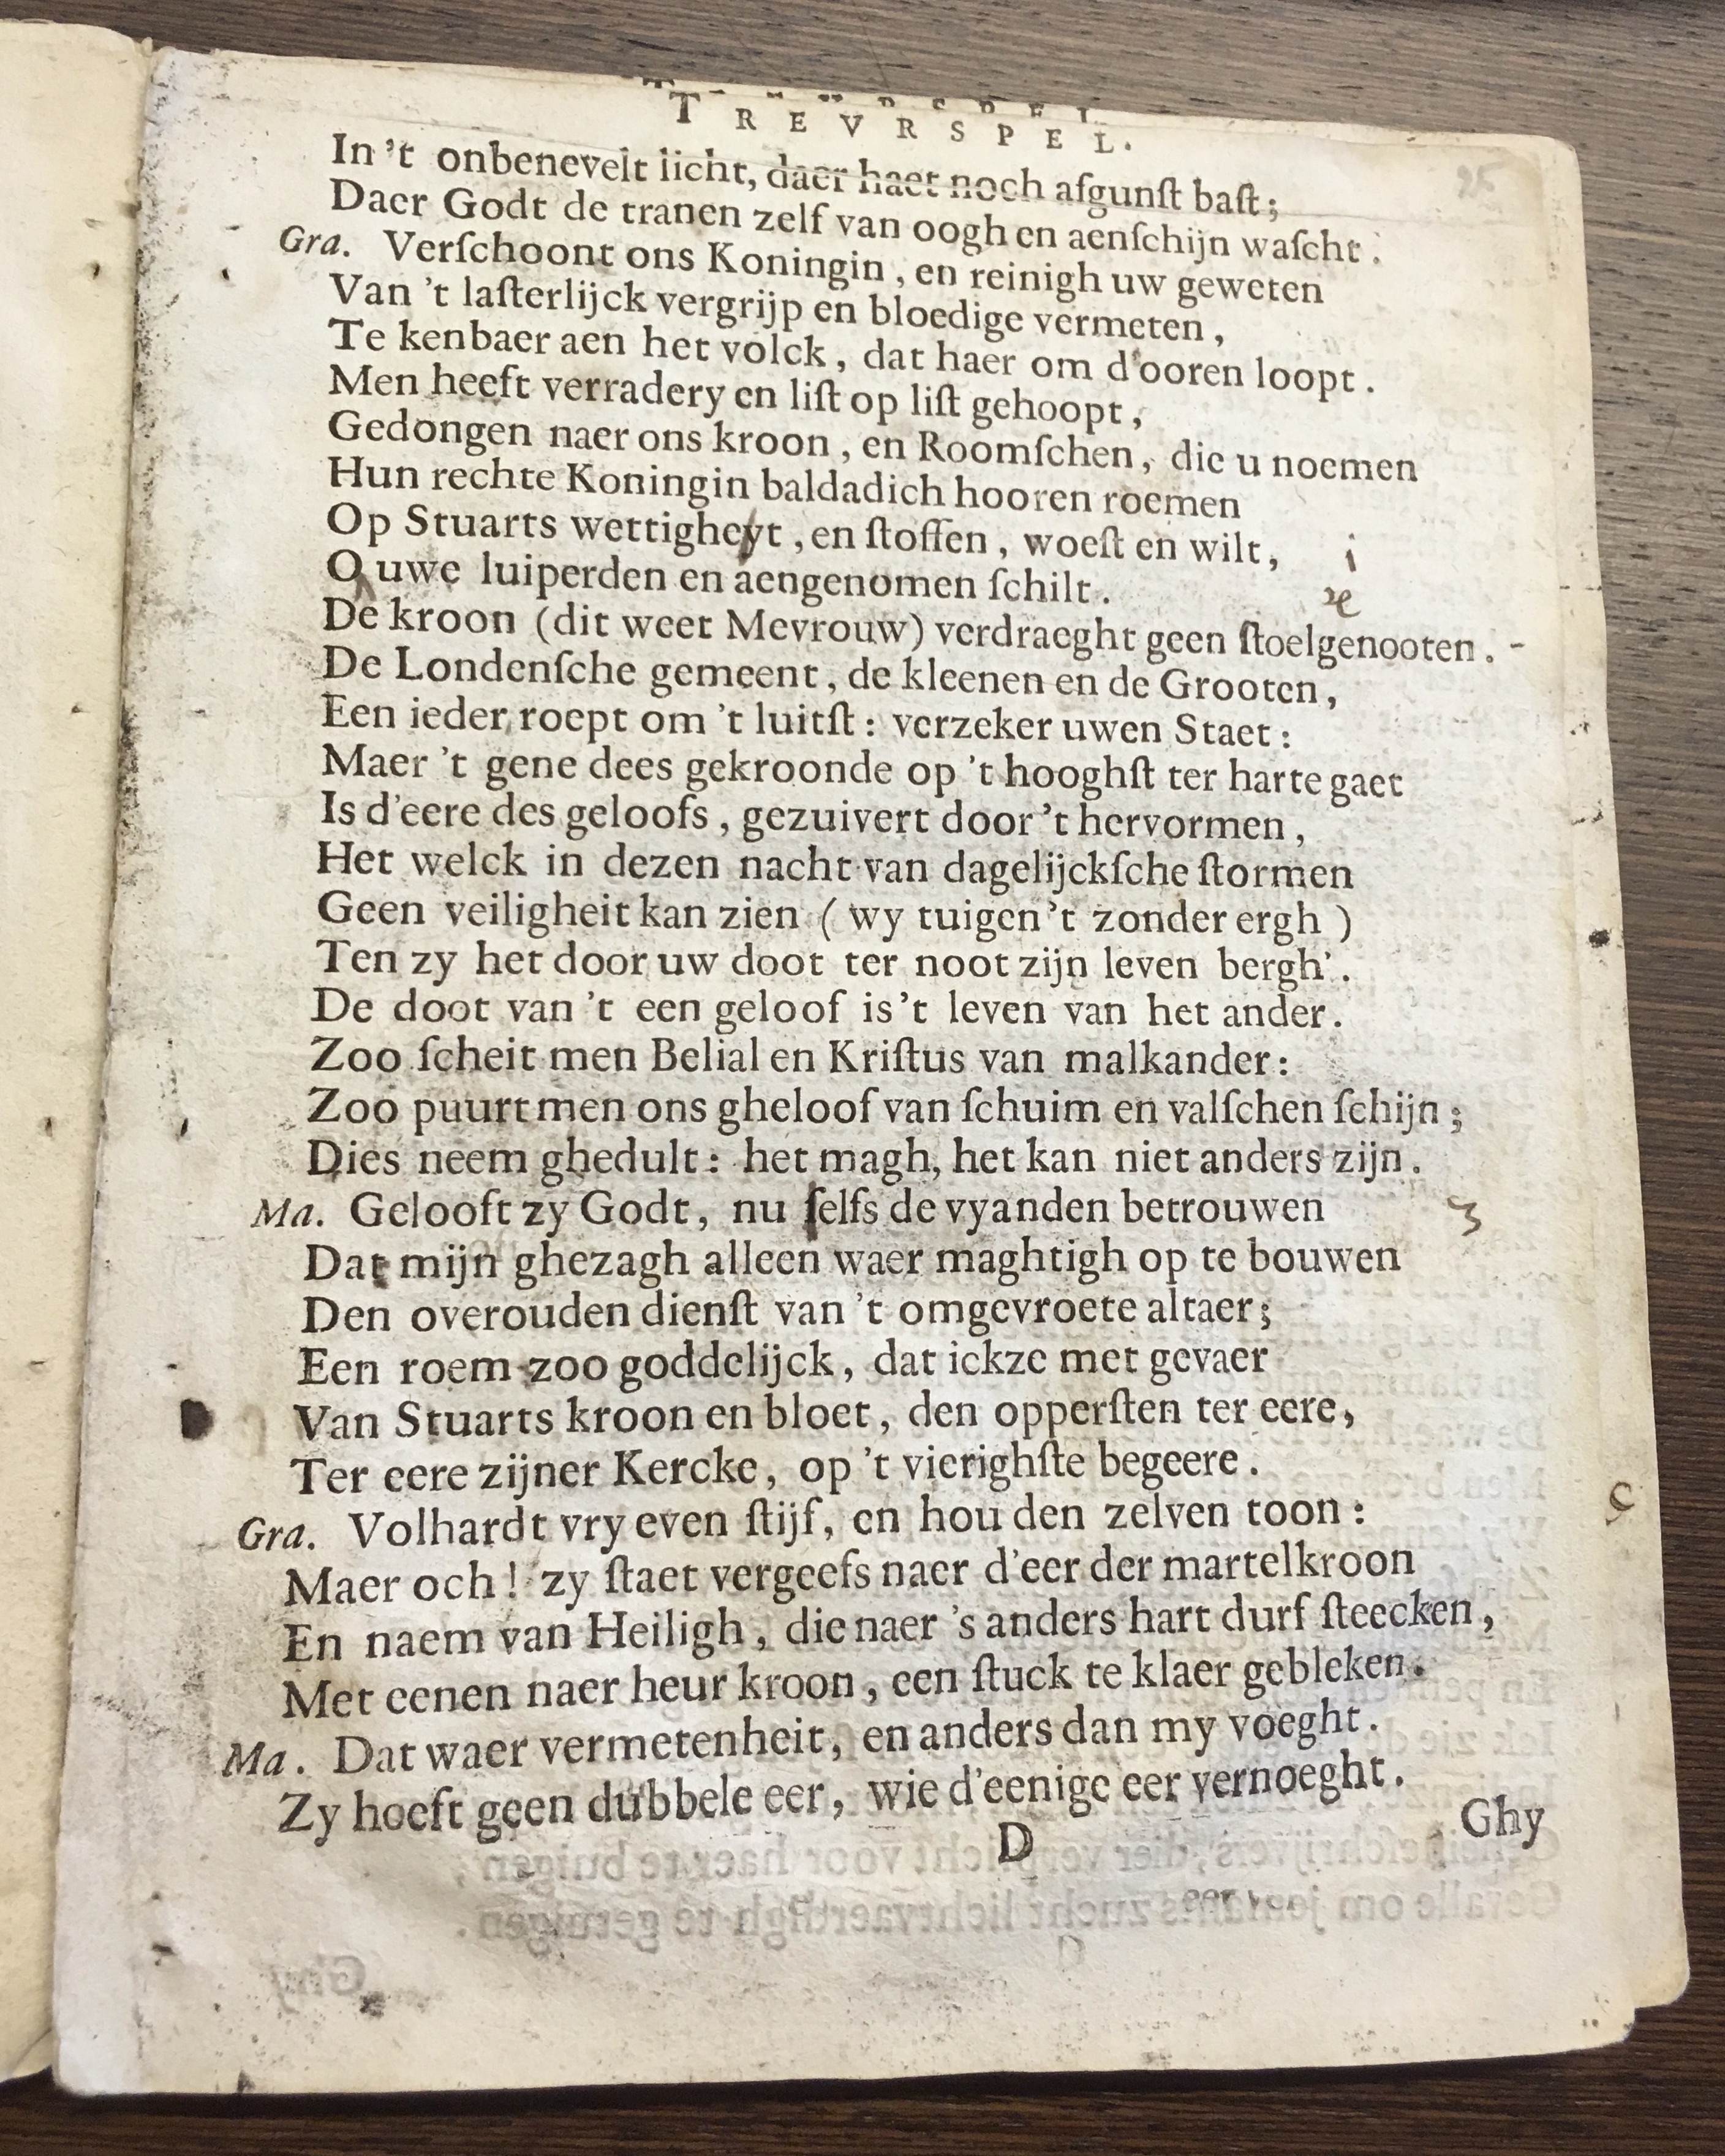 TREVRSPEL.
25
In 't onbenevelt licht, daer haet noch afgunſt baſt;
Daer Godt de tranen zelf van oogh en aenſchijn waſcht.
Gra. Verſchoont ons Koningin, en reinigh uw geweten
Van 't laſterlijck vergrijp en bloedige vermeten,
Te kenbaer aen het volck, dat haer om d'ooren loopt.
Men heeft verradery en liſt op liſt gehoopt,
Gedongen naer ons kroon, en Roomſchen, die u noemen
Hun rechte Koningin baldadich hooren roemen
Op Stuarts wettigheyt, en ſtoffen, woeſt en wilt, i
O uwe luiperden en aengenomen ſchilt.
De kroon (dit weet Mevrouw) verdraeght geen ſtoelgenooten. -
De Londenſche gemeent, de kleenen en de Grooten,
Een ieder roept om 't luitſt: verzeker uwen Staet:
Maer 't gene dees gekroonde op 't hooghſt ter harte gaet
Is d'eere des geloofs, gezuivert door 't hervormen,
Het welck in dezen nacht van dagelijckſche ſtormen
Geen veiligheit kan zien (wy tuigen 't zonder ergh)
Ten zy het door uw doot ter noot zijn leven bergh'.
De doot van 't een geloof is 't leven van het ander.
Zoo ſcheit men Belial en Kriſtus van malkander:
Zoo puurt men ons gheloof van ſchuim en valſchen ſchijn;
Dies neem ghedult: het magh, het kan niet anders zijn.
Ma. Gelooft zy Godt, nu ſelfs de vyanden betrouwen 3
Dat mijn ghezagh alleen waer maghtigh op te bouwen
Den overouden dienſt van 't omgevroete altaer;
Een roem zoo goddelijck, dat ickze met gevaer
Van Stuarts kroon en bloet, den opperſten ter eere,
Ter eere zijner Kercke, op 't vierighſte begeere.
Gra. Volhardt vry even ſtijf, en hou den zelven toon:
Maer och! zy ſtaet vergeefs naer d'eer der martelkroon
En naem van Heiligh, die naer 's anders hart durf ſteecken,
Met eenen naer heur kroon, een ſtuck te klaer gebleken.
Ma. Dat waer vermetenheit, en anders dan my voeght.
Zy hoeft geen dubbele eer, wie d'eenige eer vernoeght.
D Ghy